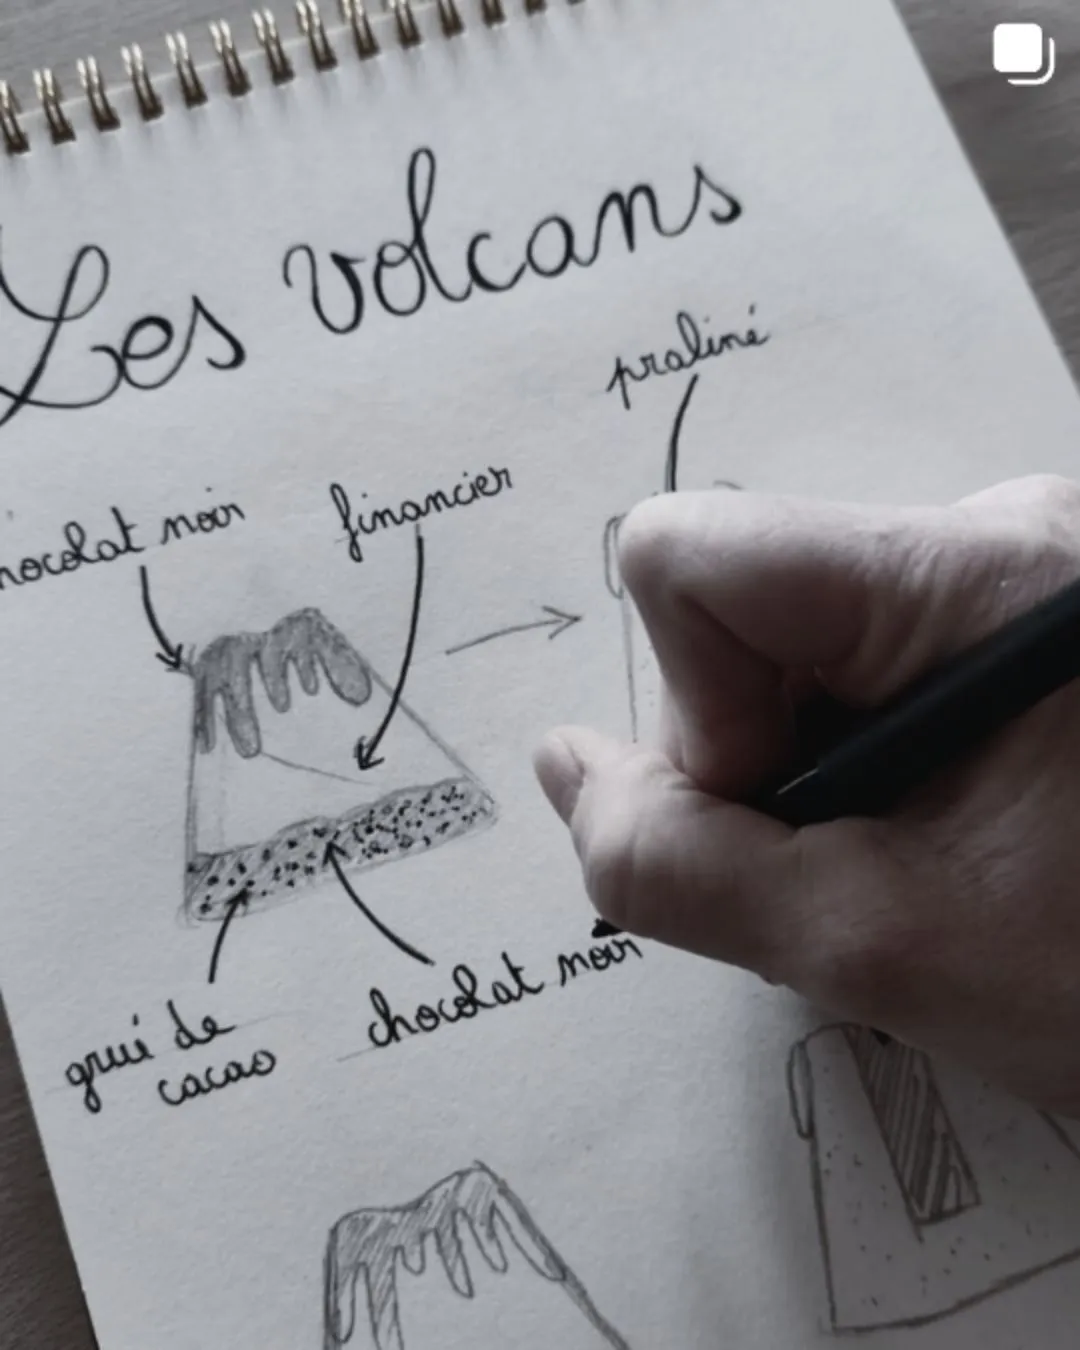 Les volcans
praliné
hocolat noir
financier
grué de
cacao
chocolat noir